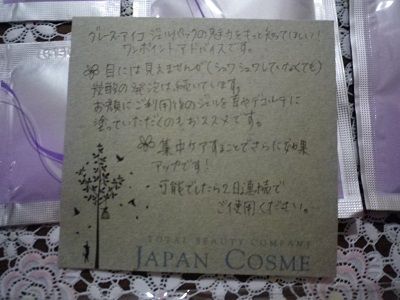 グレースアイコ ジェルパックの魅力をもっと知ってほしい!
ワンポイントアドバイスです。
目には見えませんが(シュワシュワしていなくても)
炭酸の発泡は続いています。
お顔にご利用後のジェルを首やデコルテに
塗っていただくのもおススメです。
集中ケアすることでさらに効果
アップです!
可能でしたら2日連続で
ご使用ください。
TOTAL BEAUTY COMPANY
JAPAN COSME